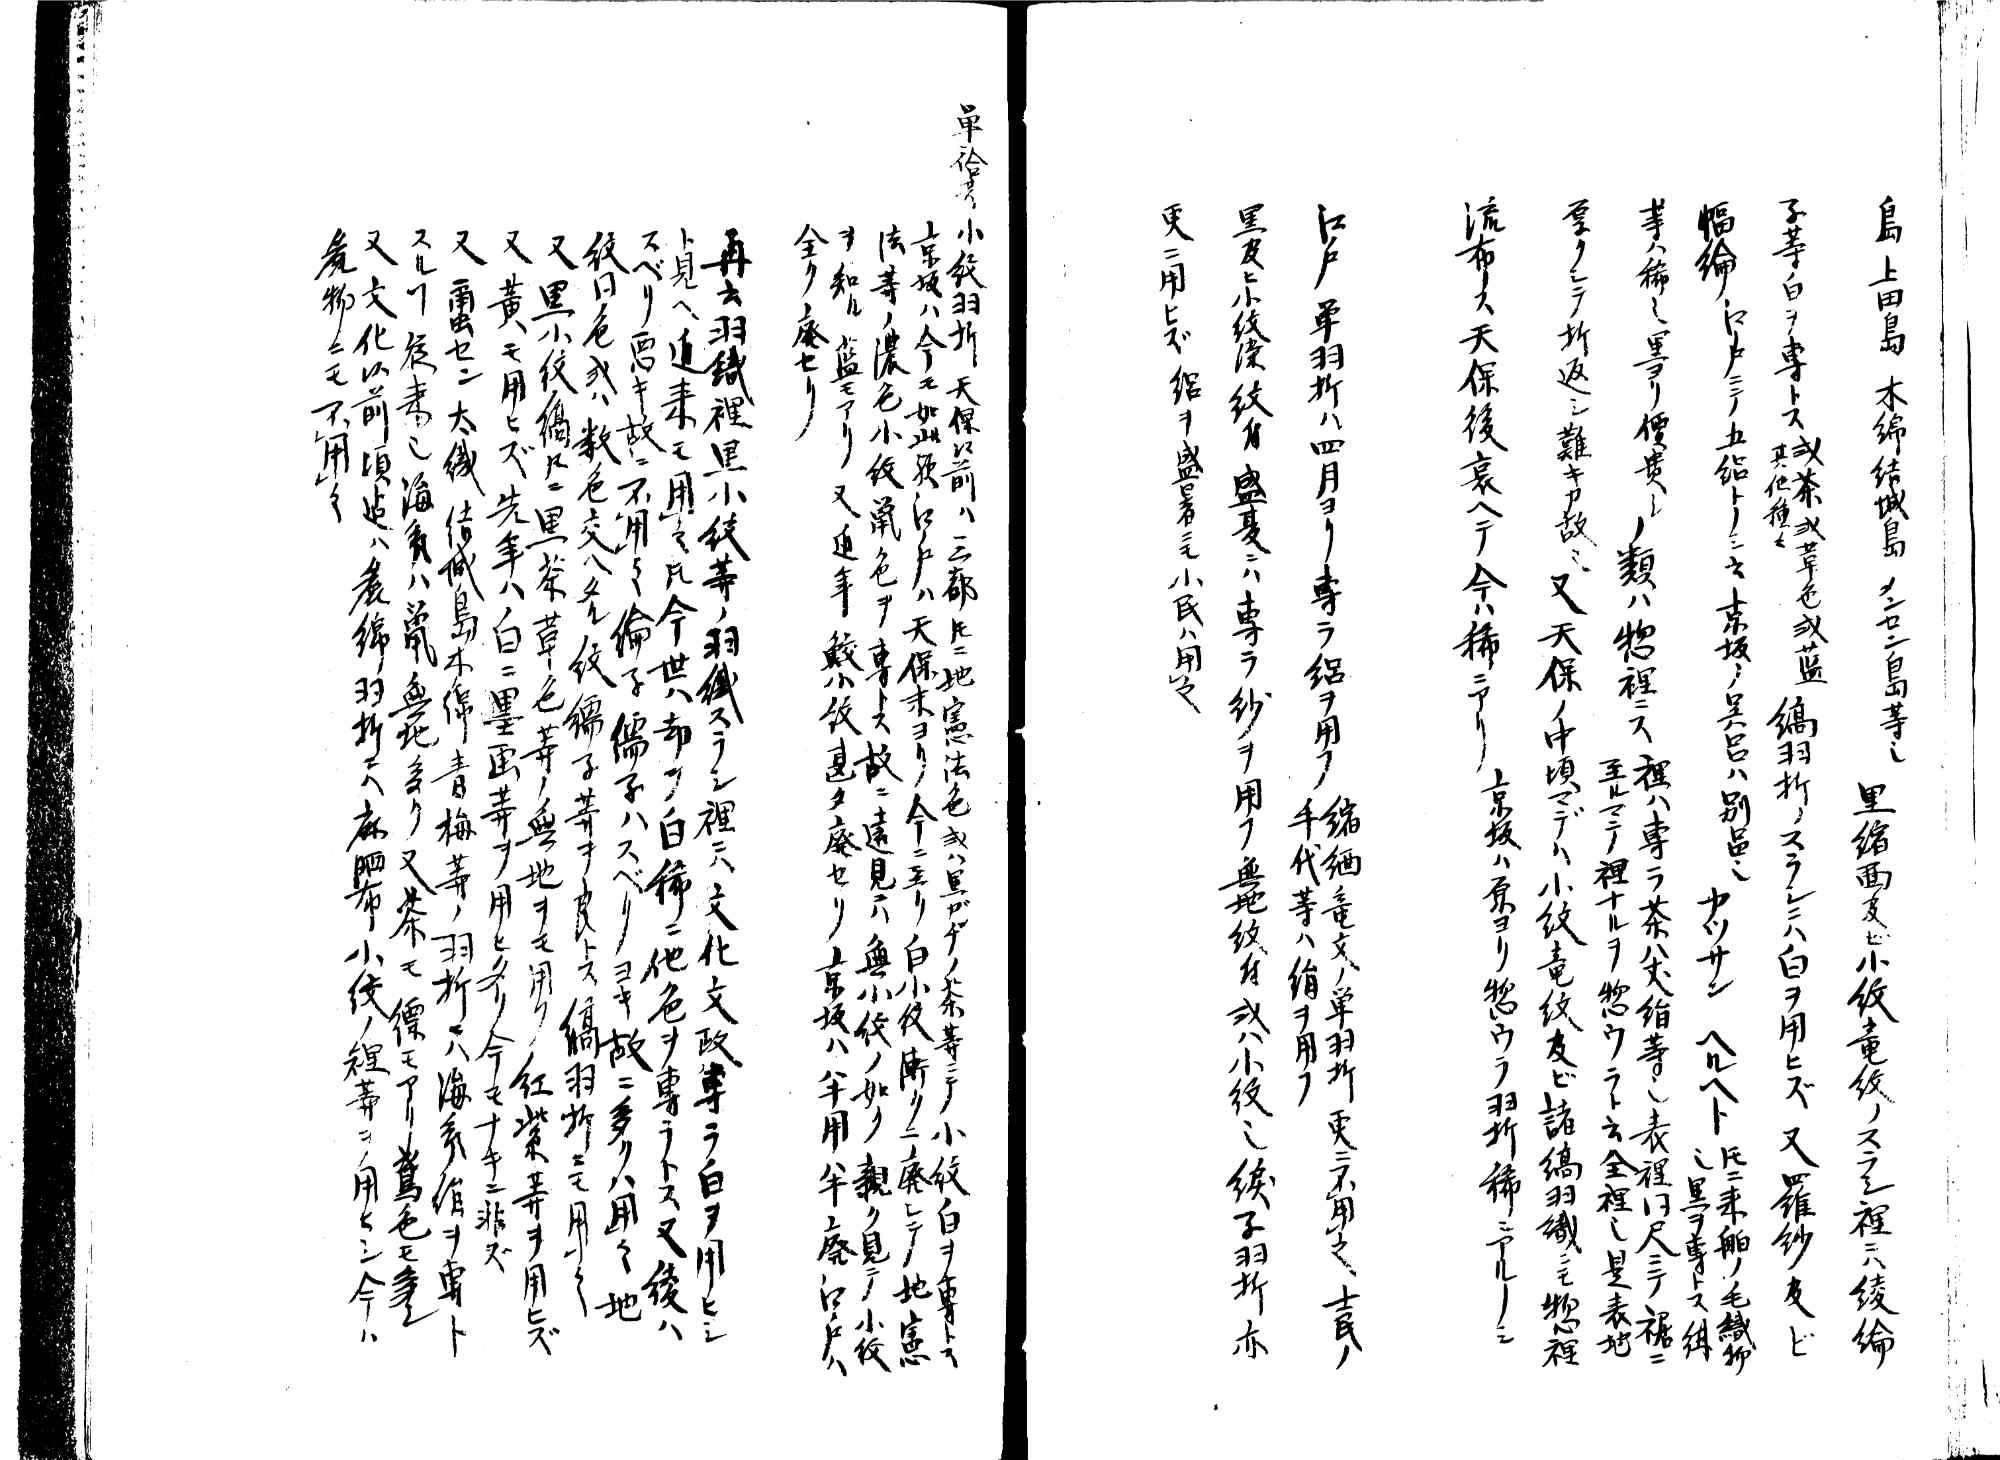 島 上田島 木綿結城島 メンセン島等也 黒縮緬及ビ小紋竜紋ノスラシ裡ニハ綾綸
子等白ヲ専トス 或茶或草色或藍 其他種々 縞羽折ノスラシニハ白ヲ用ヒズ 又羅紗及ビ
幅綸 江戸ニテ五絽トノミ云 京坂ノ呉呂ハ別品也 カツサン ヘルヘト 氏ニ来舶ノ毛織物也 黒ヲ専トス 縞
等ハ稀也 黒ヨリ價貴シ ノ類ハ惣裡ニス 裡ハ専ラ茶八丈絹等也 表裡同尺ニテ裾ニ至ルマデ裡ナルヲ惣ウラト云 全裡也 是表地
厚クシテ折返シ難キガ故也 又天保ノ中頃マデハ小紋竜紋及ビ諸縞羽織ニモ惣裡
流布ス 天保後衰ヘテ今ハ稀ニアリ 京坂ハ原ヨリ惣ウラ羽折稀ニアルノミ
江戸 単羽折ハ四月ヨリ専ラ絽ヲ用フ 縮緬竜文ノ単羽折更ニ不用之 士民ノ手代等ハ絹ヲ用フ
黒及ヒ小紋染紋付 盛夏ニハ専ラ紗ヲ用フ 無地紋付或ハ小紋也 緞子羽折亦
更ニ用ヒズ 絽ヲ盛暑ニモ小民ハ用之
単袷等小紋羽折 天保以前ハ三都トモニ地憲法色或ハ黒ガチノ茶等ニテ小紋白ヲ専トス
京坂ハ今モ如此 江戸ハ天保末ヨリ今ニ至リ白小紋漸クニ廃シテ地憲
法等ノ濃色小紋鼠色ヲ専トス 故ニ遠見ハ無小紋ノ如ク親ク見テ小紋
ヲ知ル 藍モアリ 又近年鮫小紋甚タ廃セリ 京坂ハ半用半廃 江戸ハ
全ク廃セリ
再云羽織裡黒小紋等ノ羽織スラシ裡ニハ文化文政専ラ白ヲ用ヒシ
ト見ヘ 近来モ用之トモ今世ハ却テ白稀ニ他色ヲ専ラトス 又綾ハ
スベリ悪キ故ニ不用之 綸子繻子ハスベリヨキ故ニ多クハ用之 地
紋同色或ハ数色交ヘタル紋繻子等ヲ良トス 縞羽折ニモ用之
又黒小紋縞トモニ黒茶草色等ノ無地ヲモ用フ 紅紫等ヲ用ヒズ
又黄モ用ヒズ 先年ハ白ニ墨画等ヲ用ヒタリ 今モナキニ非ズ
又 メンセン太織 結城島木綿青梅等ノ羽折ニハ海気絹ヲ専ト
スルヿ従来也 海気ハ鼠無地多ク又茶モ縹モアリ 鳶色モ多シ
又文化以前頃迄ハ麁綿羽折ニハ麻晒布小紋ノ裡等ヲ用ヒシ 今ハ
麁物ニモ不用之